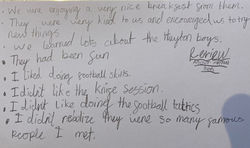 • We were enjoying a very nice breakfast from them.
• They were very kind to us and encouraged us to try
new things
• We learned lots about the Huyton boys.
• They had been fun
• I liked doing football skills.
• I didn't like the knife session.
• I didn't like doing the football tactics
• I didn't realize they were so many famous
people I met.
Review